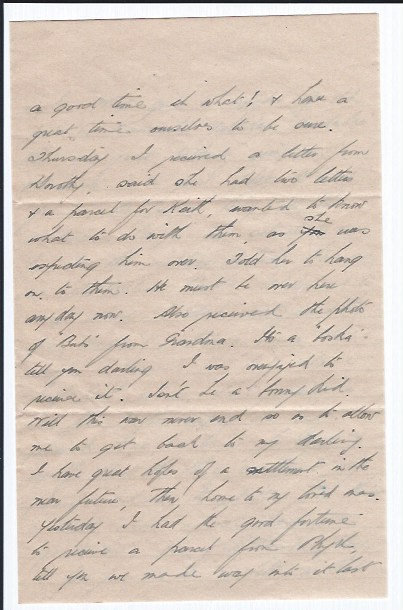 a good time eh what! & have a
great time ourselves to be sure.
Thursday I received a letter from
Dorothy, said she had two letters
& a parcel for Keith, wanted to know
what to do with them, as she was
expecting him over. Told her to hang
on to them. He must be over here
anyday now. Also received the photo
of Bubs from Grandma. Its a
tell you darling I was overjoyed to
receive it. Isn't he a bonny kid.
Will this war never end so as to allow
me to get back to my darling.
I have great hopes of a settlement in the
near future, then home to my loved ones.
Yesterday I had the good fortune
to receive a parcel from
tell you we made way into it last